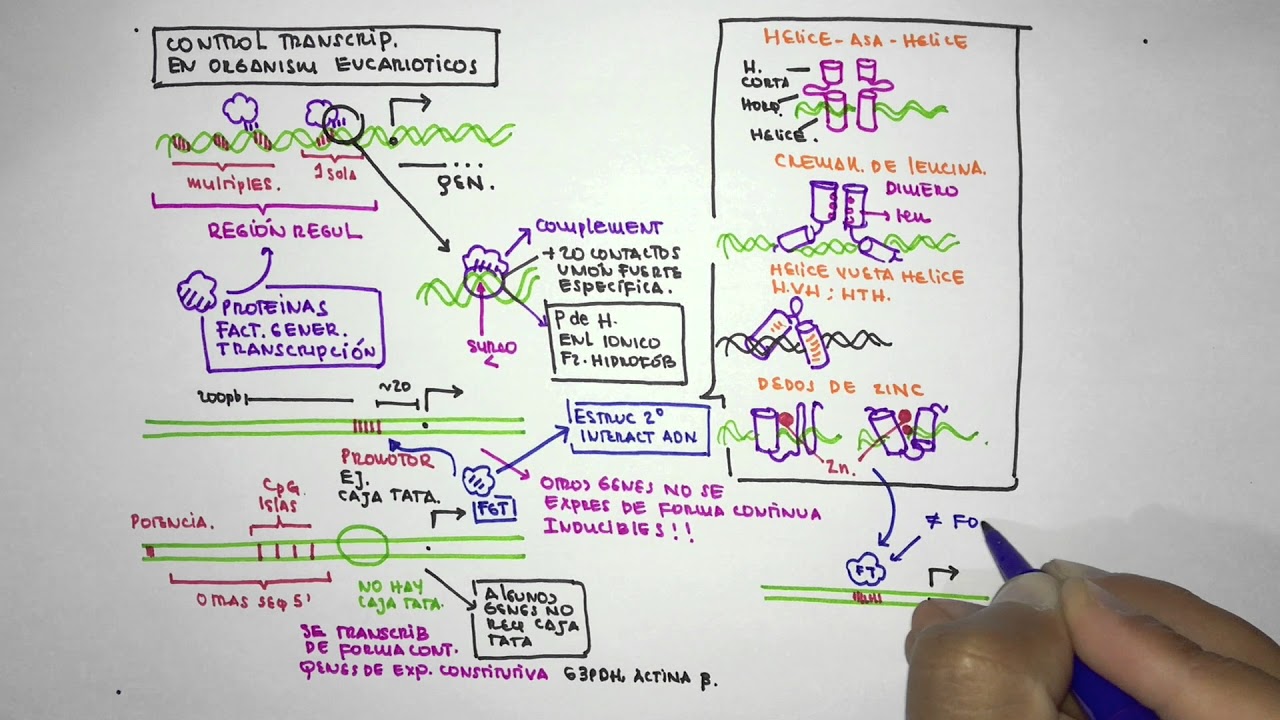 CONTROL TRANSCRIP.
EN ORGANISM EUCARIOTICOS
MULTIPLES.
1 SOLA
GEN.
REGIÓN REGUL
PROTEINAS
FACT. GENER.
TRANSCRIPCIÓN
COMPLEMENT
+20 CONTACTOS
UNIÓN FUERTE
ESPECÍFICA.
SURCO
P de H.
ENL IONICO
FZ. HIDROFÓB
200pb
~20
PROMOTOR
EJ.
CAJA TATA.
FGT
ESTRUC 2º
INTERACT ADN
OTROS GENES NO SE
EXPRES DE FORMA CONTINUA
INDUCIBLES!!
POTENCIA.
CpG
ISLAS
O MAS SEQ 5'
NO HAY
CAJA TATA.
ALGUNOS
GENES NO
REQ CAJA
TATA
SE TRANSCRIB
DE FORMA CONT.
GENES DE EXP. CONSTITUTIVA G3PDH, ACTINA β.
HELICE-ASA-HELICE
H.
CORTA
HORQ.
HELICE.
CREMAH. DE LEUCINA.
DIMERO
leu
HELICE VUELTA HELICE
H.V.H ; HTH.
DEDOS DE ZINC
Zn.
≠ FO
FT